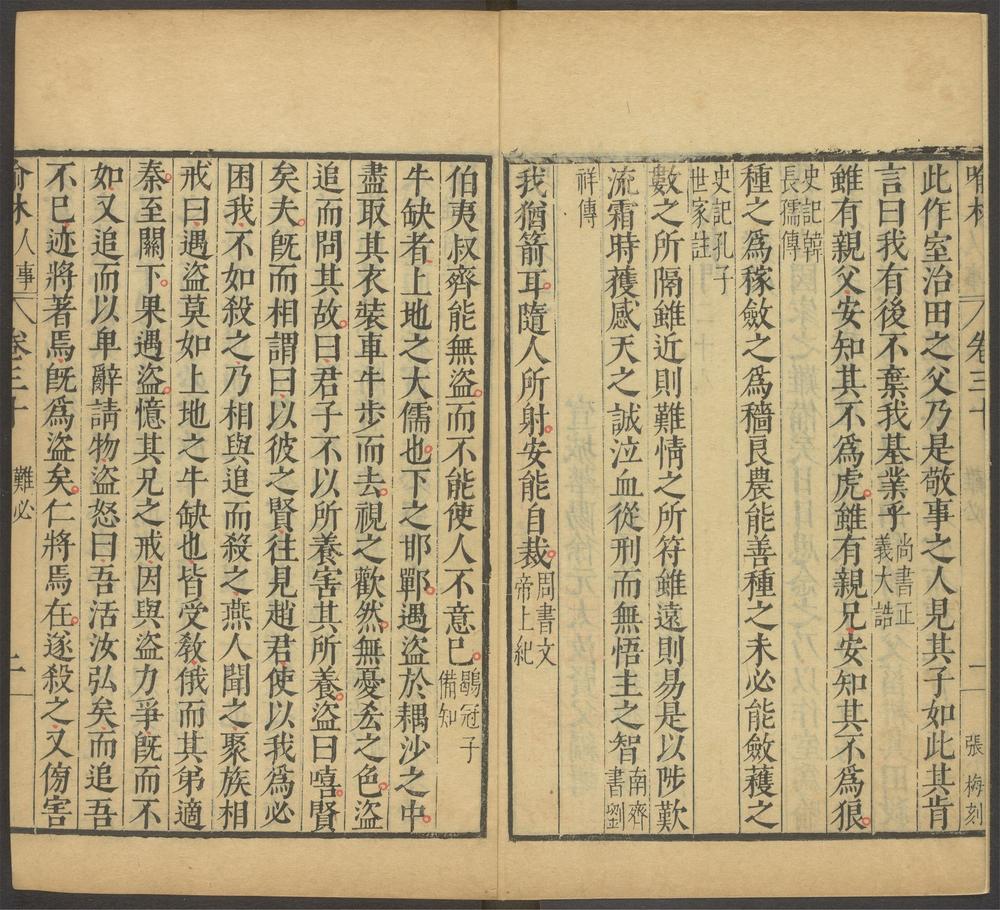 喻林 卷三十 難必 二 張梅刻
此作室治田之父乃是敬事之人見其子如此其肯
言曰我有後不棄我基業乎尚書正義大誥
雖有親父安知其不爲虎雖有親兄安知其不爲狼
史記韓長孺傳
種之爲稼斂之爲穡良農能善種之未必能斂穫之
史記孔子世家註
數之所隔雖近則難情之所符雖遠則易是以陟歎
流霜時獲感天之誠泣血從刑而無悟主之智南齊書劉
祥傳
我猶箭耳隨人所射安能自裁周書文帝上紀
伯夷叔齊能無盜而不能使人不意巳鶡冠子備知
牛缺者上地之大儒也下之邯鄲遇盜於耦沙之中
盡取其衣裝車牛步而去視之歡然無憂𠫤之色盜
追而問其故曰君子不以所養害其所養盜曰嘻賢
矣夫旣而相謂曰以彼之賢往見趙君使以我爲必
困我不如殺之乃相與追而殺之燕人聞之聚族相
戒曰遇盜莫如上地之牛缺也皆受教俄而其弟適
秦至關下果遇盜憶其兄之戒因與盜力爭旣而不
如又追而以卑辭請物盜怒曰吾活汝弘矣而追吾
不已迹將著焉旣爲盜矣仁將焉在遂殺之又傍害
喻林 人事 卷三十 難必